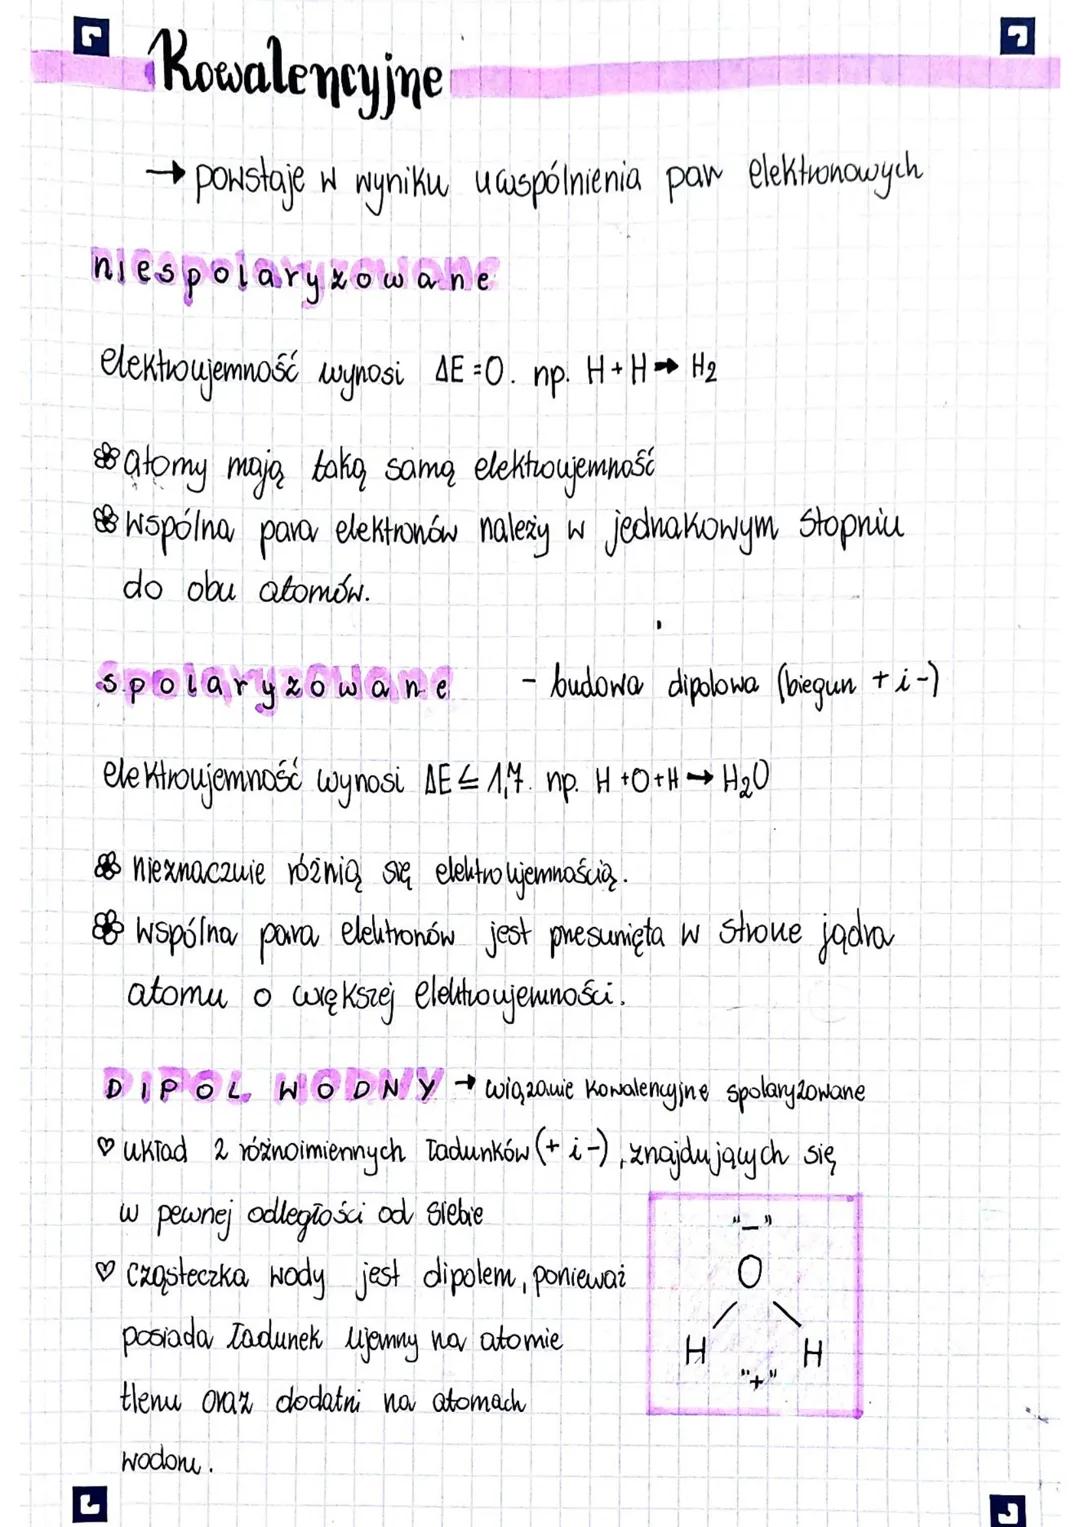 Kowalencyjne
→ powstaje w wyniku uwspólnienia par elektronowych
niespolaryzowane
elektroujemność wynosi ΔE = 0. np. H + H → H₂
atomy mają taką samą elektroujemność
Wspólna para elektronów należy w jednakowym stopniu
do obu atomów.
spolaryzowane - budowa dipolowa (biegun + i -)
elektroujemność wynosi ΔE ≤ 1,7. np. H + O + H → H₂O
nieznacznie różnią się elektroujemnością.
wspólna para elektronów jest presunięta w strone jądra
atomu o większej elektroujemności.
DIPOL WODNY → wiązanie kowalencyjne spolaryzowane
♡ układ 2 różnoimiennych ładunków (+ i -), znajdujących się
w pewnej odległości od siebie
♡ cząsteczka wody jest dipolem, ponieważ
posiada ładunek ujemny na atomie
tlenu oraz dodatni na atomach
wodoru.
"-"
O
H H
"+"